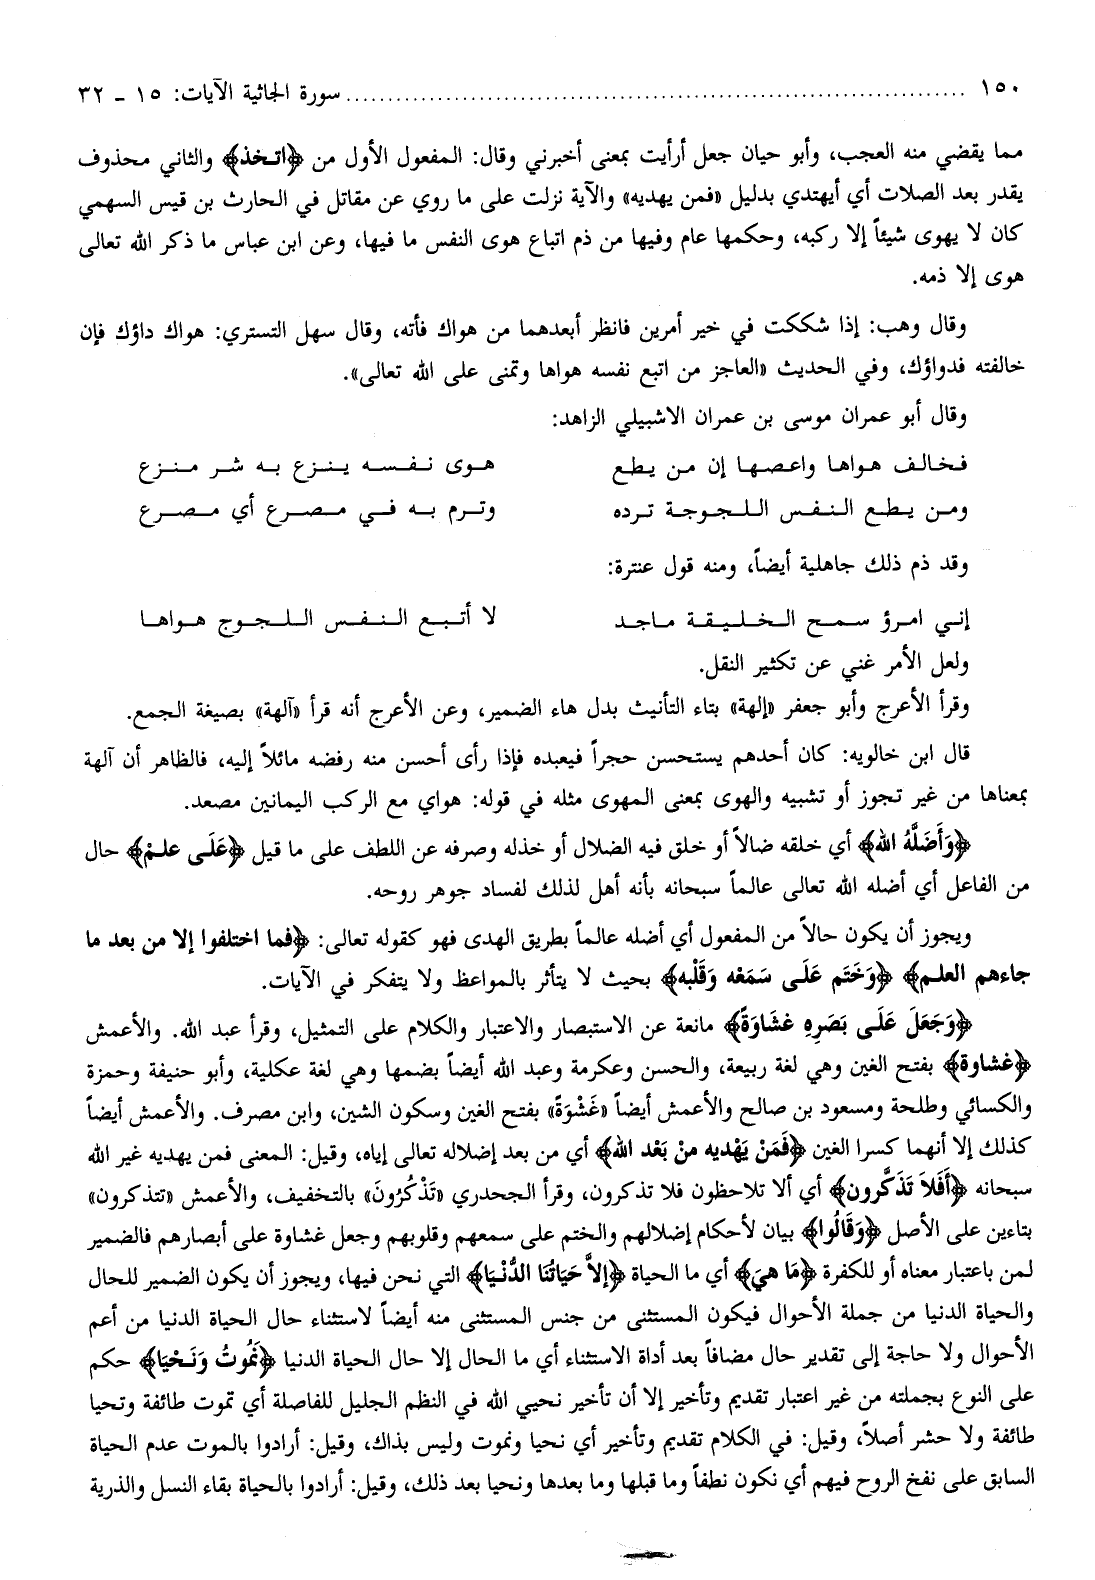 ١٥٠ ........................................ سورة الجاثية الآيات: ١٥ - ٣٢
مما يقضي منه العجب، وأبو حيان جعل أرأيت بمعنى أخبرني وقال: المفعول الأول من ﴿اتخذ﴾ والثاني محذوف
يقدر بعد الصلات أي أيهتدي بدليل «فمن يهديه» والآية نزلت على ما روي عن مقاتل في الحارث بن قيس السهمي
كان لا يهوى شيئاً إلا ركبه، وحكمها عام وفيها من ذم اتباع هوى النفس ما فيها، وعن ابن عباس ما ذكر الله تعالى
هوى إلا ذمه.
وقال وهب: إذا شككت في خير أمرين فانظر أبعدهما من هواك فأته، وقال سهل التستري: هواك داؤك فإن
خالفته فدواؤك، وفي الحديث «العاجز من اتبع نفسه هواها وتمنى على الله تعالى».
وقال أبو عمران موسى بن عمران الاشبيلي الزاهد:
فخالف هواها واعصها إن من يطع هوى نفسه ينزع به شر منزع
ومن يطع النفس اللجوجة ترده وترم به في مصرع أي مصرع
وقد ذم ذلك جاهلية أيضاً، ومنه قول عنترة:
إني امرؤ سمح الخليقة ماجد لا أتبع النفس اللجوج هواها
ولعل الأمر غني عن تكثير النقل.
وقرأ الأعرج وأبو جعفر «إلهة» بتاء التأنيث بدل هاء الضمير، وعن الأعرج أنه قرأ «آلهة» بصيغة الجمع.
قال ابن خالويه: كان أحدهم يستحسن حجراً فيعبده فإذا رأى أحسن منه رفضه مائلاً إليه، فالظاهر أن آلهة
بمعناها من غير تجوز أو تشبيه والهوى بمعنى المهوى مثله في قوله: هواي مع الركب اليمانين مصعد.
﴿وَأَضَلَّهُ الله﴾ أي خلقه ضالاً أو خلق فيه الضلال أو خذله وصرفه عن اللطف على ما قيل ﴿عَلَى علمْ﴾ حال
من الفاعل أي أضله الله تعالى عالماً سبحانه بأنه أهل لذلك لفساد جوهر روحه.
ويجوز أن يكون حالاً من المفعول أي أضله عالماً بطريق الهدى فهو كقوله تعالى: ﴿فما اختلفوا إلا من بعد ما
جاءهم العلم﴾ ﴿وَخَتَم عَلَى سَمَعْه وَقَلْبه﴾ بحيث لا يتأثر بالمواعظ ولا يتفكر في الآيات.
﴿وَجَعَلَ عَلَى بَصَرِه غشَاوَةً﴾ مانعة عن الاستبصار والاعتبار والكلام على التمثيل، وقرأ عبد الله. والأعمش
﴿غشاوة﴾ بفتح الغين وهي لغة ربيعة، والحسن وعكرمة وعبد الله أيضاً بضمها وهي لغة عكلية، وأبو حنيفة وحمزة
والكسائي وطلحة ومسعود بن صالح والأعمش أيضاً «غَشْوَةً» بفتح الغين وسكون الشين، وابن مصرف. والأعمش أيضاً
كذلك إلا أنهما كسرا الغين ﴿فَمَنْ يَهْديه منْ بَعْد الله﴾ أي من بعد إضلاله تعالى إياه، وقيل: المعنى فمن يهديه غير الله
سبحانه ﴿أَفَلاَ تَذَكَّرون﴾ أي ألا تلاحظون فلا تذكرون، وقرأ الجحدري «تَذْكُرُونَ» بالتخفيف، والأعمش «تتذكرون»
بتاءين على الأصل ﴿وَقَالُوا﴾ بيان لأحكام إضلالهم والختم على سمعهم وقلوبهم وجعل غشاوة على أبصارهم فالضمير
لمن باعتبار معناه أو للكفرة ﴿مَا هيَ﴾ أي ما الحياة ﴿إلاَّ حَيَاتُنَا الدُّنْيَا﴾ التي نحن فيها، ويجوز أن يكون الضمير للحال
والحياة الدنيا من جملة الأحوال فيكون المستثنى من جنس المستثنى منه أيضاً لاستثناء حال الحياة الدنيا من أعم
الأحوال ولا حاجة إلى تقدير حال مضافاً بعد أداة الاستثناء أي ما الحال إلا حال الحياة الدنيا ﴿نَمُوتُ وَنَحْيَا﴾ حكم
على النوع بجملته من غير اعتبار تقديم وتأخير إلا أن تأخير نحيي الله في النظم الجليل للفاصلة أي تموت طائفة وتحيا
طائفة ولا حشر أصلاً، وقيل: في الكلام تقديم وتأخير أي نحيا ونموت وليس بذاك، وقيل: أرادوا بالموت عدم الحياة
السابق على نفخ الروح فيهم أي نكون نطفاً وما قبلها وما بعدها ونحيا بعد ذلك، وقيل: أرادوا بالحياة بقاء النسل والذرية